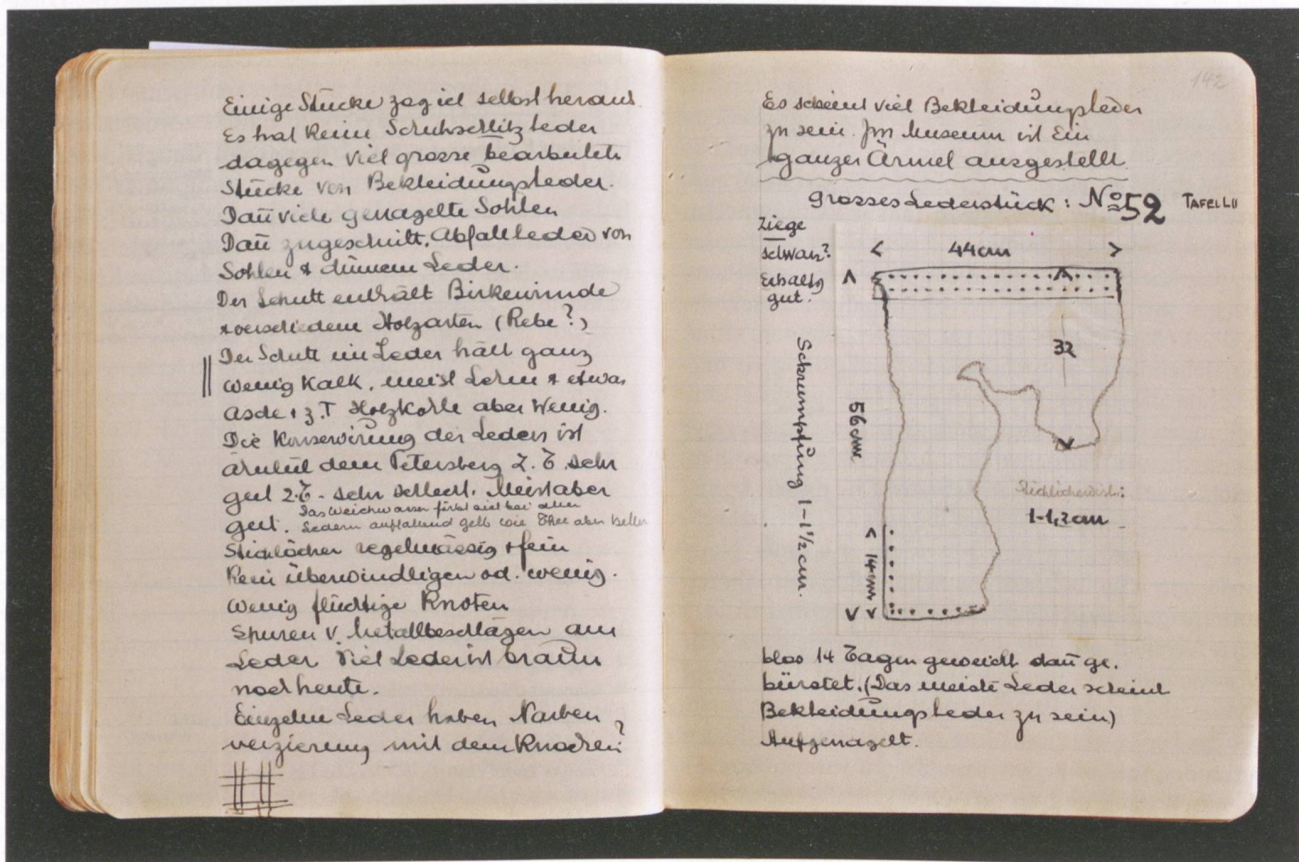 Einige Stücke zog ich selbst heraus.
Es hat keine Schuhschlitzleder
dagegen viel grosse bearbeitete
Stücke von Bekleidungsleder.
Dañ viele genagelte Sohlen
Dañ zugeschnitt. Abfallleder von
Sohlen & dünnem Leder.
Der Schutt enthält Birkenrinde
& verschiedene Holzarten (Rebe?)
Der Schutt im Leder hält ganz
wenig Kalk, meist Lehm & etwas
Asche & z.T Holzkohle aber wenig.
Die Konservirung des Leders ist
ähnlich dem Petersberg z.T. sehr
gut z.T. sehr schlecht. Meist aber
gut. Das Weichwasser färbt sich bei allen
Ledern auffallend gelb wie Thee aber heller
Stichlöcher regelmässig & fein
Kein überwindligen od. wenig.
wenig flüchtige Knoten
Spuren v. Metallbeschlägen am
Leder. Viel Leder ist braun
noch heute.
Einzelne Leder haben Narben
verzierung mit dem Knochen?
142
Es scheint viel Bekleidungsleder
zu sein. Im Museum ist Ein
ganzer Ärmel ausgestellt.
Grosses Lederstück: No 52 TAFEL LII
Ziege
schwarz?
Erhaltg
gut.
< 44cm >
32
56cm
14cm
Schrumpfung 1-1½ cm.
Stichlöcherdist:
1-1,2cm
blos 14 Tagen geweicht dañ ge.
bürstet. (Das meiste Leder scheint
Bekleidungsleder zu sein)
Aufgenagelt.